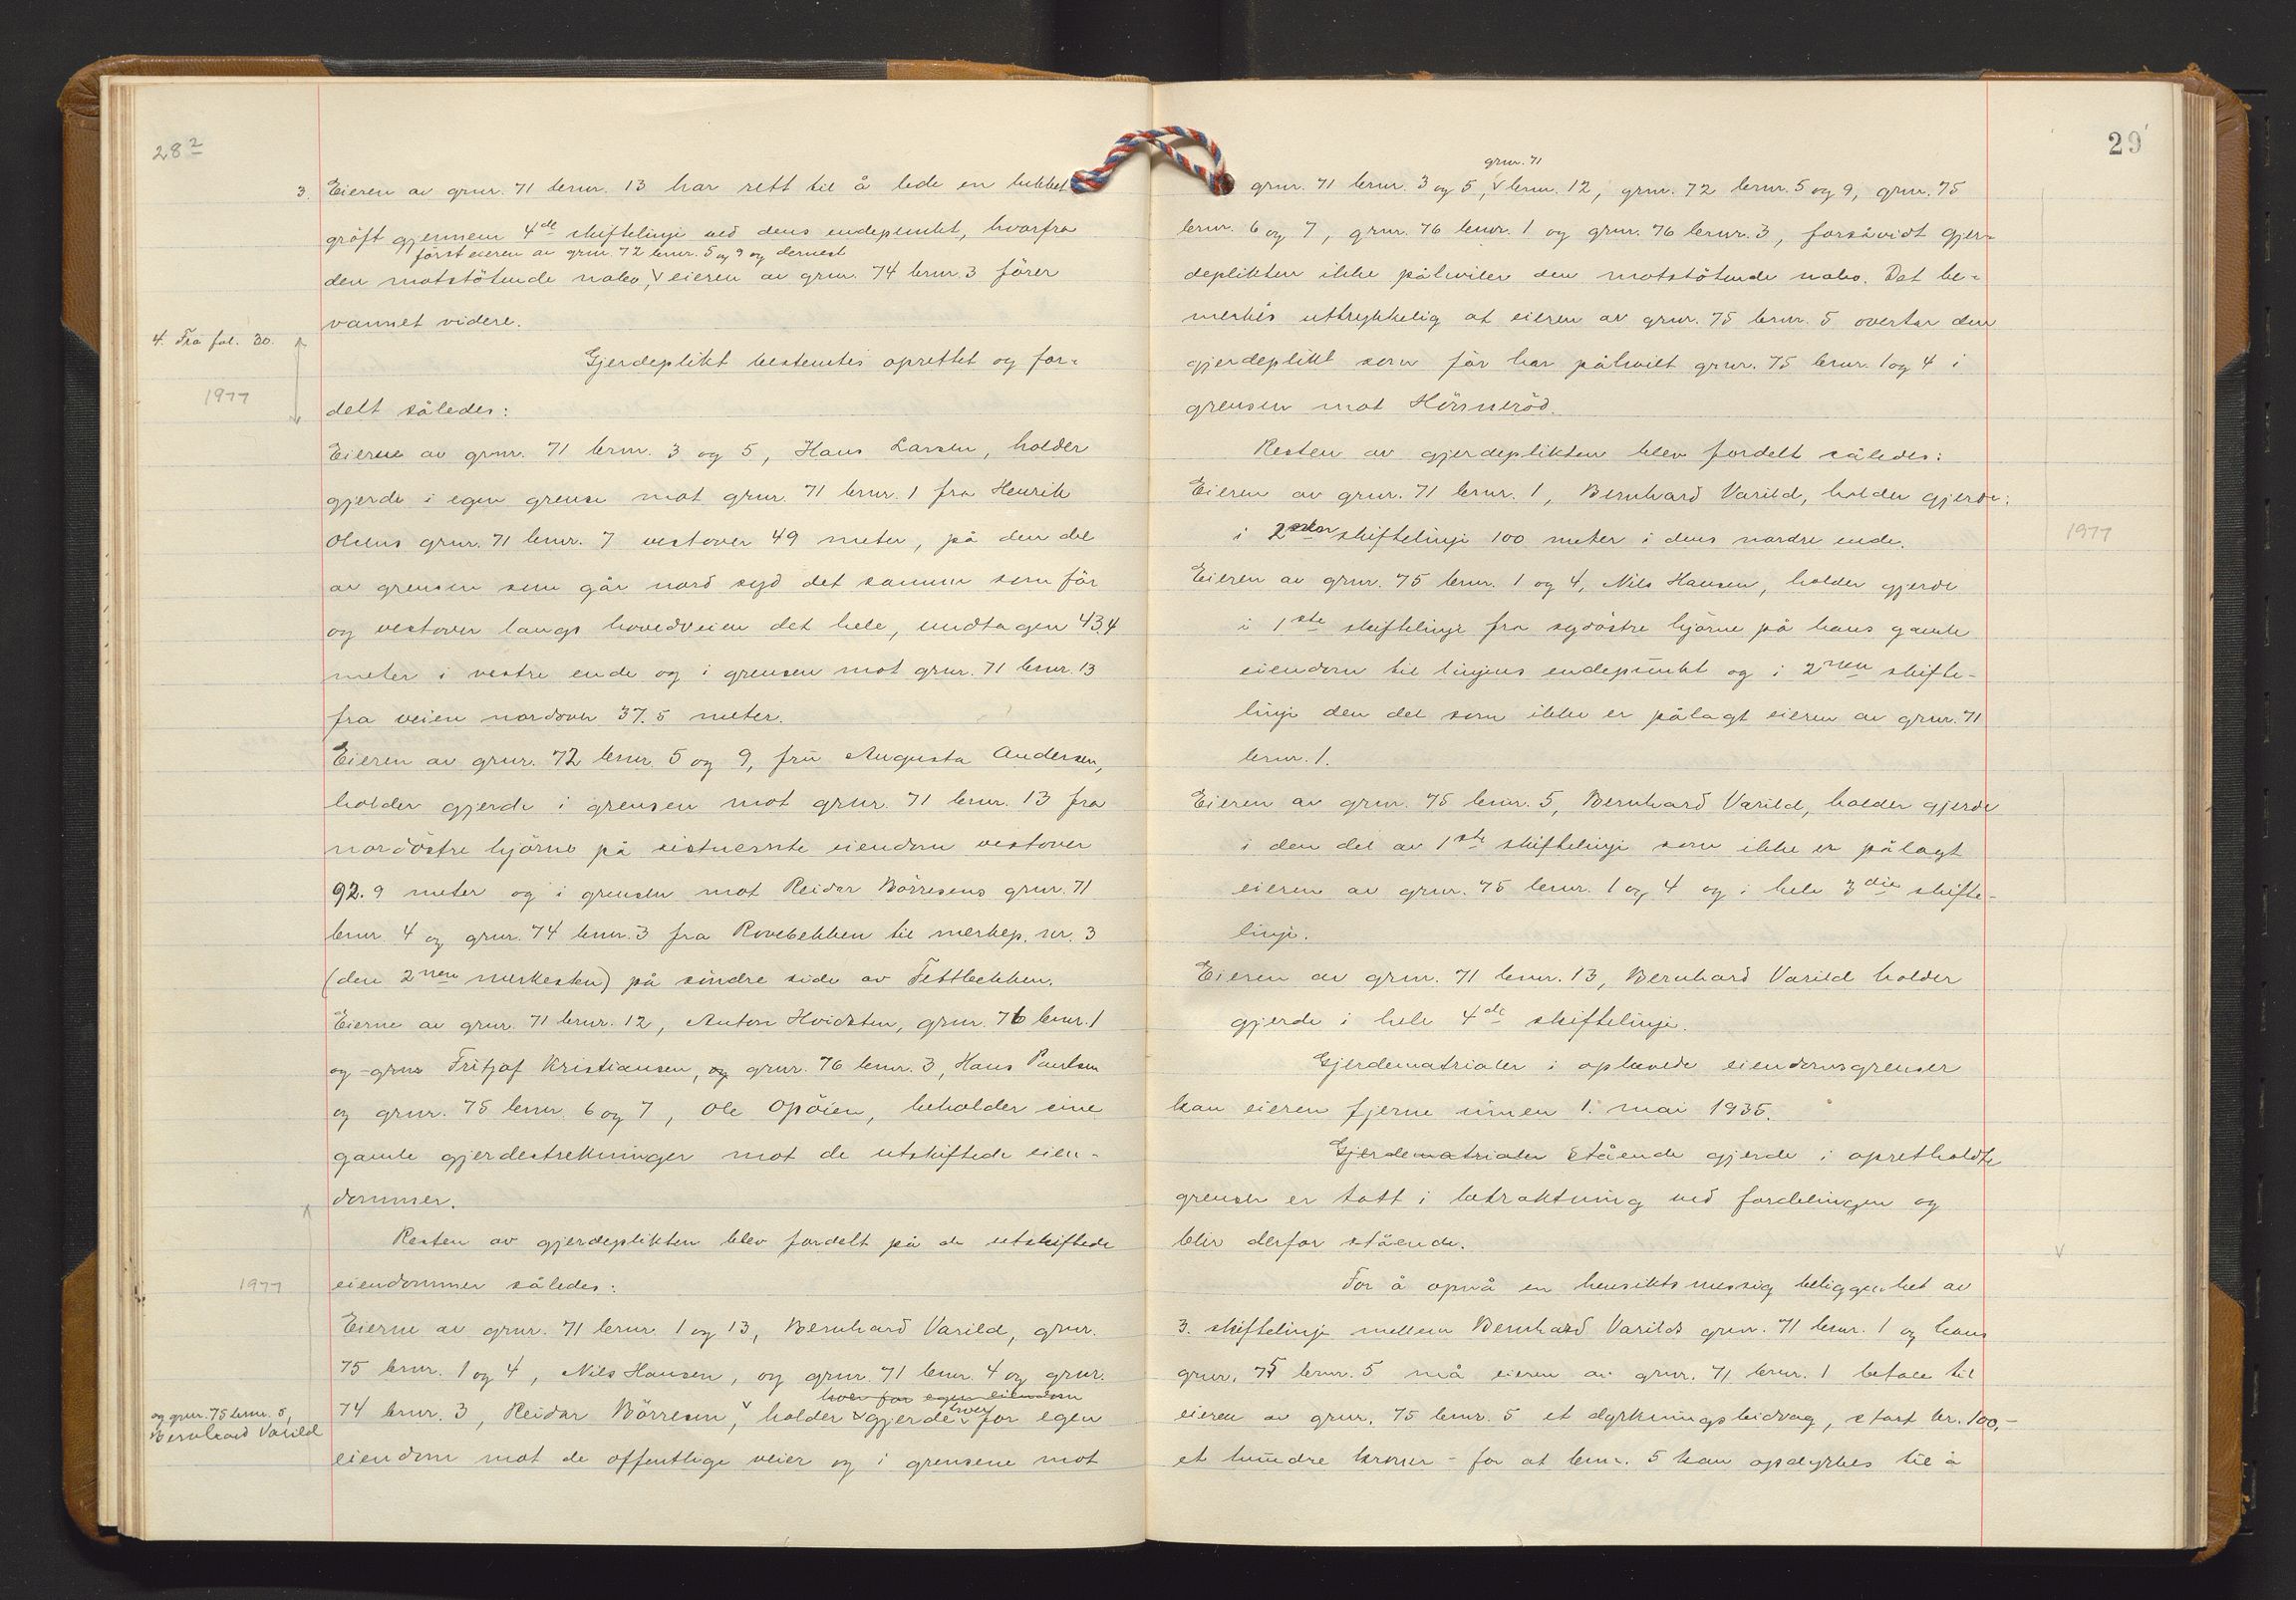 28²
3. Eieren av grnr. 71 brnr. 13 har rett til å lede en lukket
gröft gjennem 4de skiftelinje ved dens endepunkt, hvorfra
först eieren av grnr. 72 brnr. 5 og 9 og dernest
den motstötende nabo, v eieren av grnr. 74 brnr. 3 förer
vannet videre.
4. Fra fol. 30.
Gjerdeplikt bestemtes oprettet og for-
1977
delt således:
Eieren av grnr. 71 brnr. 3 og 5, Hans Larsen, holder
gjerde i egen grense mot grnr. 71 brnr. 1 fra Henrik
Olsens grnr. 71 brnr. 7 vestover 49 meter, på den del
av grensen som går nord syd det samme som för
og vestover langs hovedveien det hele, undtagen 43,4
meter i vestre ende og i grensen mot grnr. 71 brnr. 13
fra veien nordover 37.5 meter.
Eieren av grnr. 72 brnr. 5 og 9, fru Augusta Andersen,
holder gjerde i grensen mot grnr. 71 brnr. 13 fra
nordöstre hjörne på sistnevnte eiendom vestover
92.9 meter og i grensen mot Reidar Börresens grnr. 71
brnr. 4 og grnr. 74 brnr. 3 fra Rovebekken til merkep. nr. 3
(den 2nen merkesten) på söndre side av Fettbekken.
Eierne av grnr. 71 brnr. 12, Anton Hvidsten, grnr. 76 brnr. 1
og grnr Fritjof Kristiansen, og grnr. 76 brnr. 3, Hans Paulsen
og grnr. 75 brnr. 6 og 7, Ole Opöien, beholder sine
gamle gjerdestrekninger mot de utskiftede eien-
dommer.
Resten av gjerdeplikten blev fordelt på de utskiftede
1977
eiendommer således:
Eierne av grnr. 71 brnr. 1 og 13, Bernhard Varild, grnr.
75 brnr. 1 og 4, Nils Hansen, og grnr. 71 brnr. 4 og grnr.
hver for egen eiendom
74 brnr. 3, Reidar Börresen, v holder v gjerde v hver for egen
og grnr. 75 brnr. 5,
Bernhard Varild
eiendom mot de offentlige veier og i grensene mot
29
grnr. 71
grnr. 71 brnr. 3 og 5, v brnr. 12, grnr. 72 brnr. 5 og 9, grnr. 75
brnr. 6 og 7, grnr. 76 brnr. 1 og grnr. 76 brnr. 3, forsåvidt gjer-
deplikten ikke påhviler den motstötende nabo. Det be-
merkes uttrykkelig at eieren av grnr. 75 brnr. 5 overtar den
gjerdeplikt som för har påhvilt grnr. 75 brnr. 1 og 4 i
grensen mot Hörsneröd.
Resten av gjerdeplikten blev fordelt således:
Eieren av grnr. 71 brnr. 1, Bernhard Varild, holder gjerde:
i 2 skiftelinje 100 meter i dens nordre ende.
1977
Eieren av grnr. 75 brnr. 1 og 4, Nils Hansen, holder gjerde
i 1ste skiftelinje fra sydöstre hjörne på hans gamle
eiendom til linjens endepunkt og i 2nen skifte-
linje den del som ikke er pålagt eieren av grnr. 71
brnr. 1.
Eieren av grnr. 75 brnr. 5, Bernhard Varild, holder gjerde
i den del av 1ste skiftelinje som ikke er pålagt
eieren av grnr. 75 brnr. 1 og 4 og i hele 3die skifte-
linje.
Eieren av grnr. 71 brnr. 13, Bernhard Varild holder
gjerde i hele 4de skiftelinje.
Gjerdematrialer i ophevede eiendomsgrenser
kan eieren fjerne innen 1. mai 1935.
Gjerdematrialer Stående gjerde i opretholdte
grenser er tatt i betraktning ved fordelingen og
blir derfor stående.
For å opnå en hensiktsmessig beliggenhet av
3. skiftelinje mellem Bernhard Varilds grnr. 71 brnr. 1 og hans
grnr. 75 brnr. 5 må eieren av grnr. 71 brnr. 1 betale til
eieren av grnr. 75 brnr. 5 et dyrkningsbidrag, stort kr. 100,-
et hundre kroner - for at brnr. 5 kan opdyrkes til å